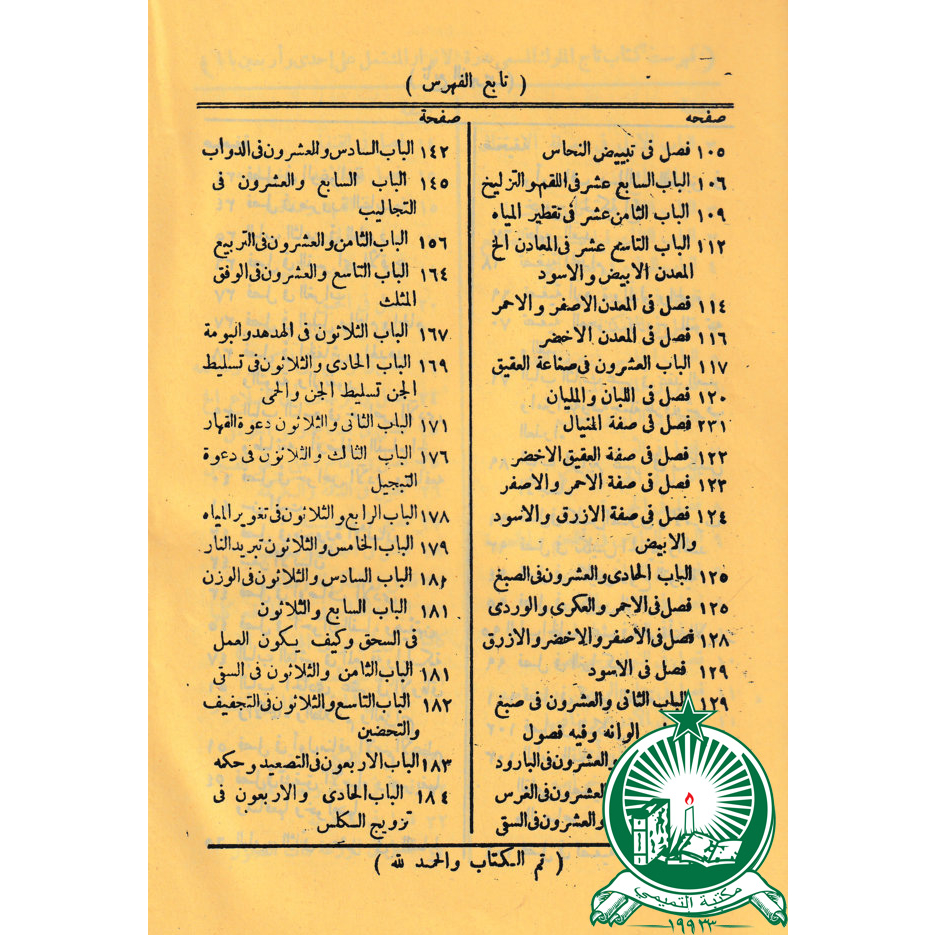 ( تابع الفهرس )
صفحه
١٠٥ فصل فى تبييض النحاس
١٠٦ الباب السابع عشر فى اللقم والتزليخ
١٠٩ الباب الثامن عشر فى تقطير المياه
١١٢ الباب التاسع عشر فى المعادن الخ
المعدن الابيض والاسود
١١٤ فصل فى المعدن الاصفر والاحمر
١١٦ فصل فى المعدن الاخضر
١١٧ الباب العشرون فى صناعة العقيق
١٢٠ فصل فى اللبان والمليان
٢٣١ فصل فى صفة المنيال
١٢٢ فصل فى صفة العقيق الاخضر
١٢٣ فصل فى صفة الاحمر والاصفر
١٢٤ فصل فى صفة الازرق والاسود
والابيض
١٢٥ الباب الحادى والعشرون فى الصبغ
١٢٥ فصل فى الاحمر والعكرى والوردى
١٢٨ فصل فى الأصفر والاخضر والازرق
١٢٩ فصل فى الاسود
١٢٩ الباب الثانى والعشرون فى صبغ
الوانه وفيه فصول
والعشرون فى البارود
العشرون فى الفرس
والعشرون فى السقى
صفحة
١٤٢ الباب السادس والعشرون فى الدواب
١٤٥ الباب السابع والعشرون فى
التجاليب
١٥٦ الباب الثامن والعشرون فى التربيع
١٦٤ الباب التاسع والعشرون فى الوفق
المثلث
١٦٧ الباب الثلاثون فى الهدهد والبومة
١٦٩ الباب الحادى والثلاثون فى تسليط
الجن تسليط الجن والحمى
١٧١ الباب الثانى والثلاثون دعوة القهار
١٧٦ الباب الثالث والثلاثون فى دعوة
التبجيل
١٧٨ الباب الرابع والثلاثون فى تغوير المياه
١٧٩ الباب الخامس والثلاثون تبريد النار
١٨١ الباب السادس والثلاثون فى الوزن
١٨١ الباب السابع والثلاثون
فى السحق وكيف يكون العمل
١٨١ الباب الثامن والثلاثون فى السقى
١٨٢ الباب التاسع والثلاثون فى التجفيف
والتحضين
١٨٣ الباب الاربعون فى التصعيد وحكه
١٨٤ الباب الحادى والاربعون فى
تزويج الكلس
( تم الكتاب والحمد لله )
مكتبة التميمي
١٩٩٣٣